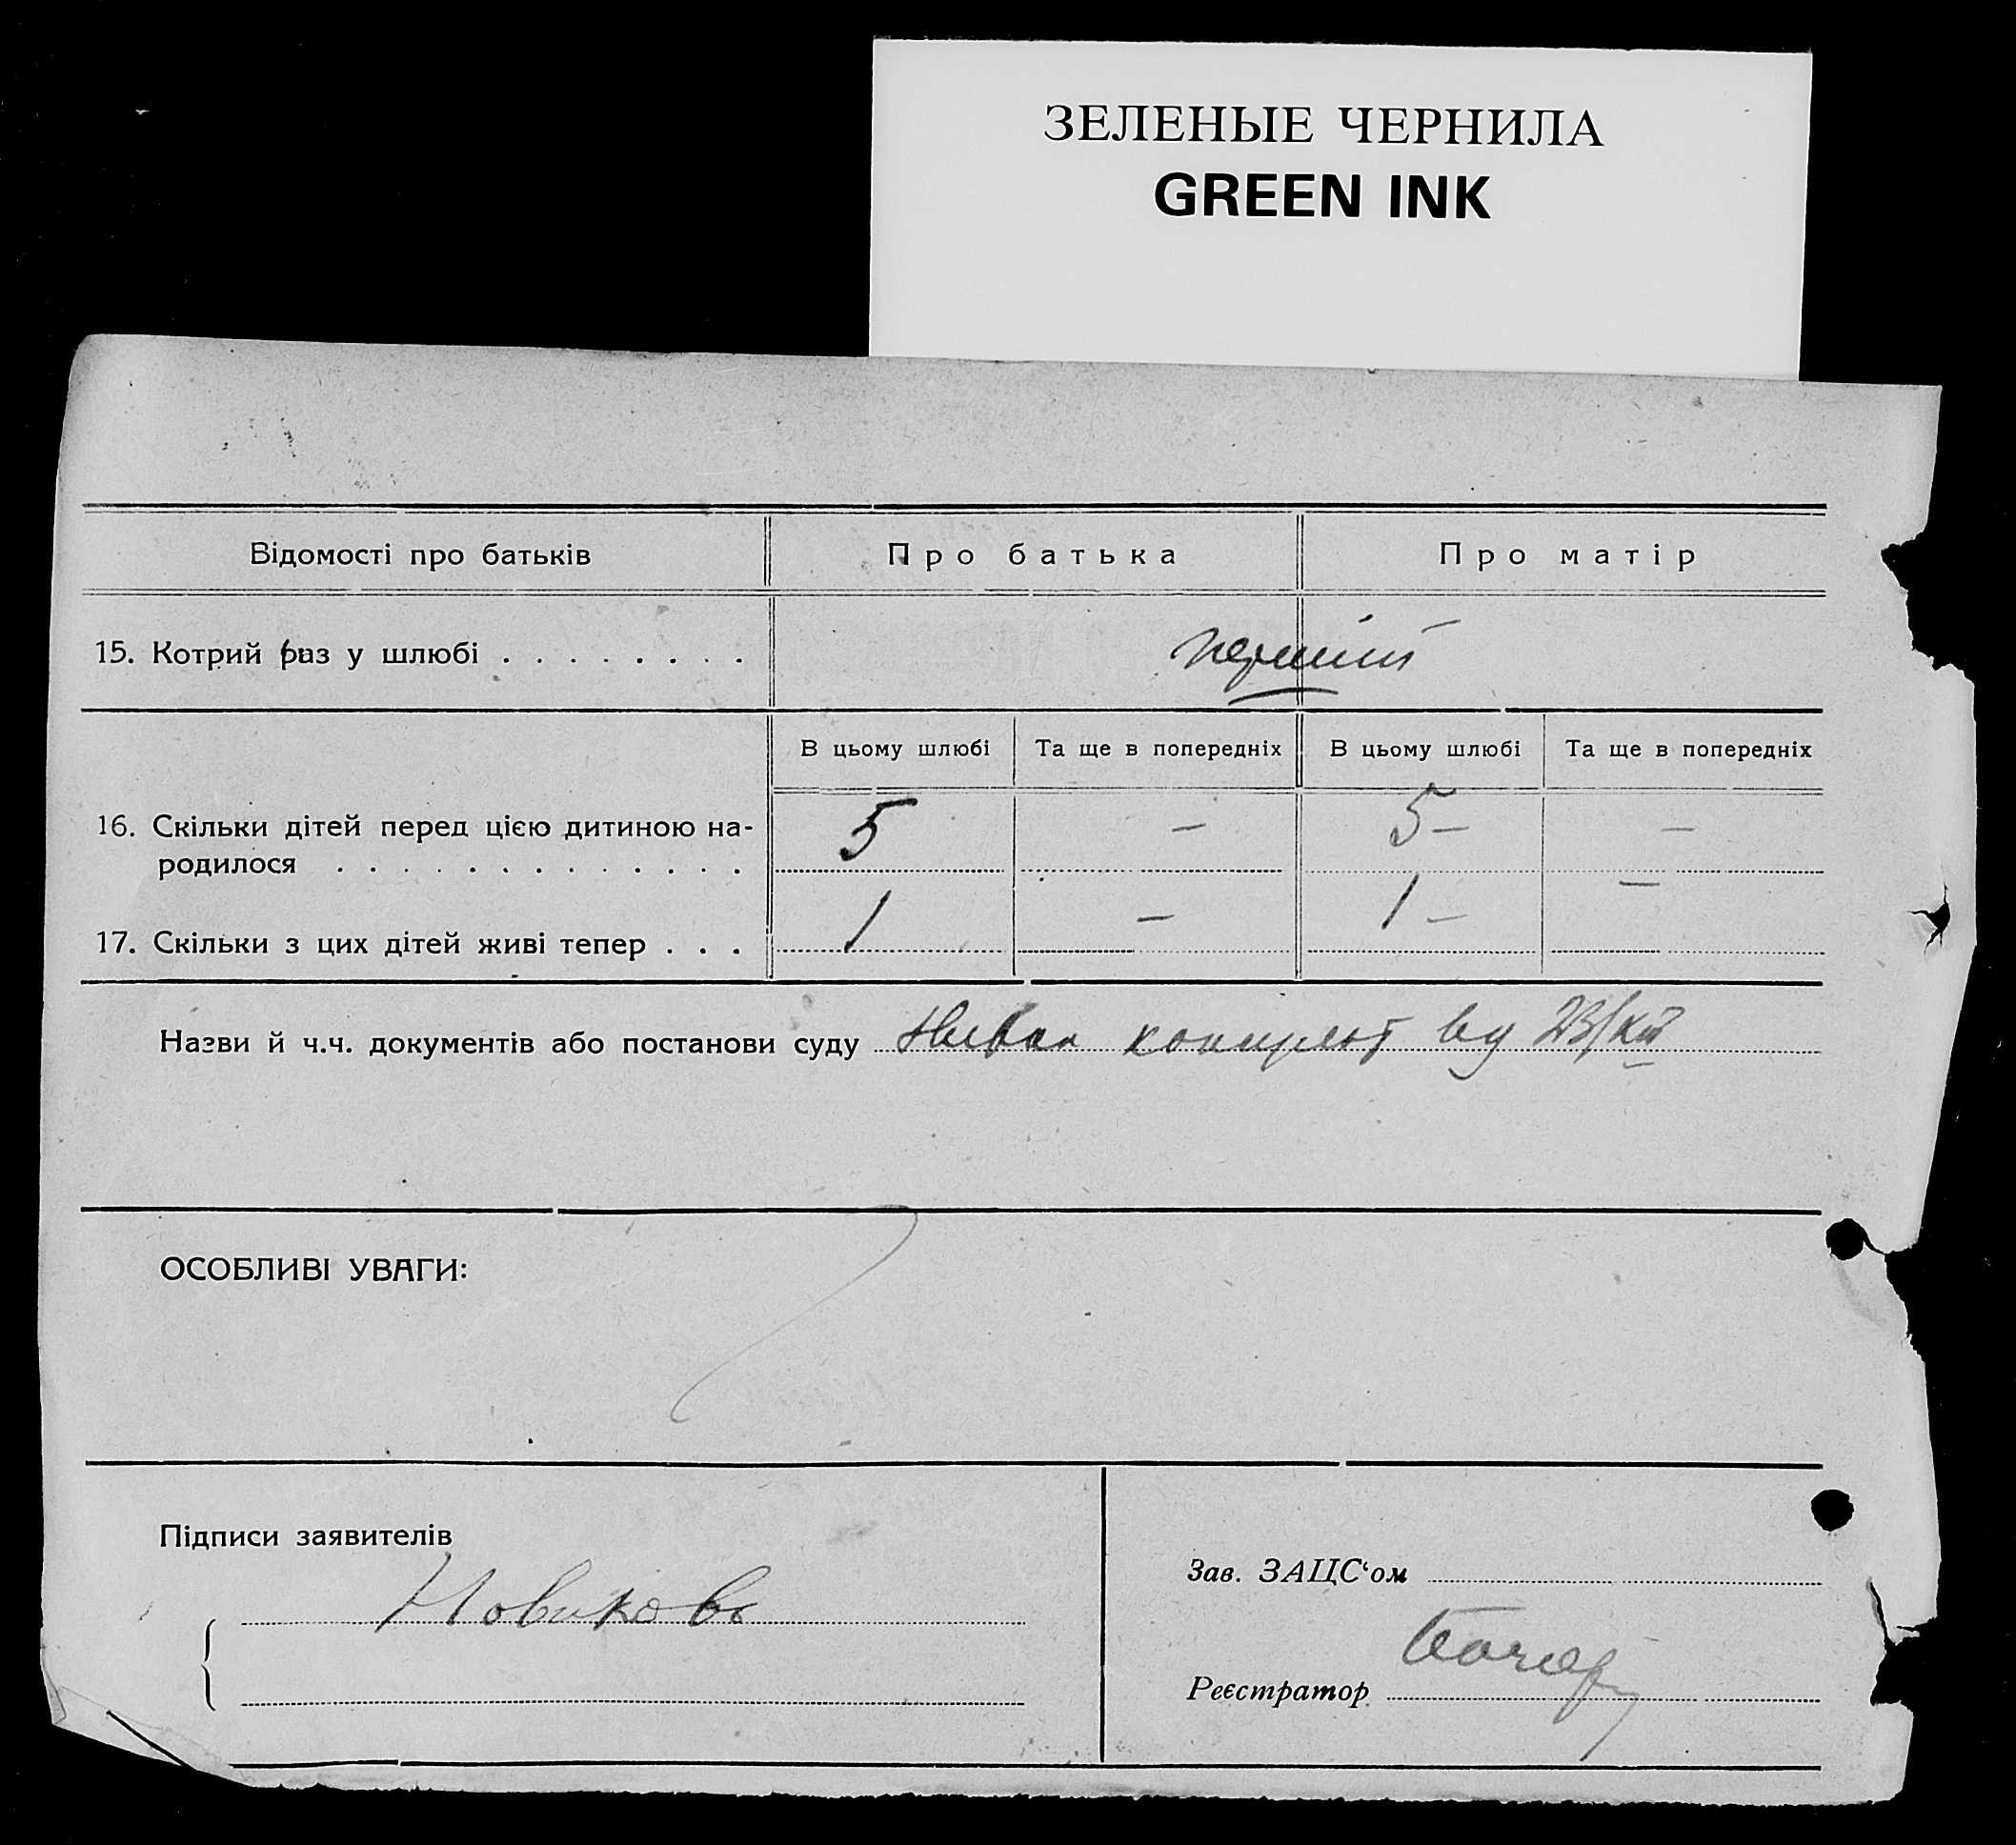 ЗЕЛЕНЫЕ ЧЕРНИЛА
GREEN INK
Відомості про батьків Про батька Про матір
15. Котрий раз у шлюбі . . . . . . . . перший
В цьому шлюбі Та ще в попередніх В цьому шлюбі Та ще в попередніх
16. Скільки дітей перед цією дитиною на- 5 – 5– –
родилося . . . . . . . . . . . . .
17. Скільки з цих дітей живі тепер . . . 1 – 1– –
Назви й ч.ч. документів або постанови суду
ОСОБЛИВІ УВАГИ:
Підписи заявителів
Новикова
Зав. ЗАЦС‘ом
Реєстратор